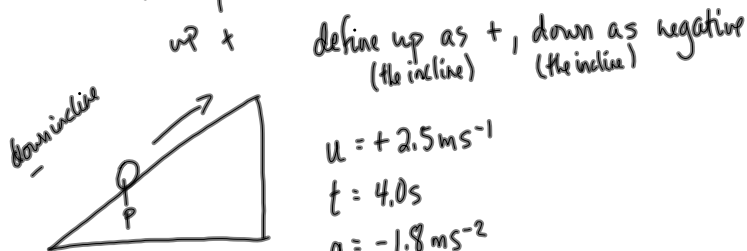 up + define up as +, down as negative
(the incline) (the incline)
down incline
-
u = +2.5ms⁻¹
t = 4.0s
P
a = -1.8ms⁻²